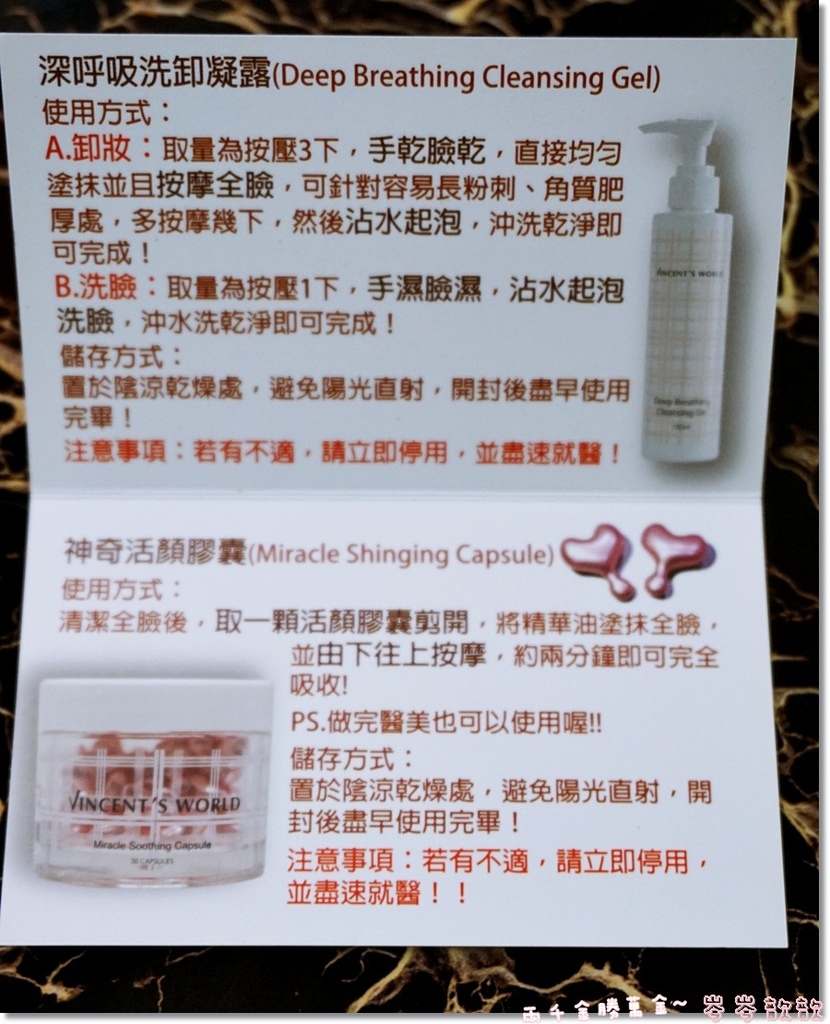 深呼吸洗卸凝露(Deep Breathing Cleansing Gel)
使用方式：
A.卸妝：取量為按壓3下，手乾臉乾，直接均勻
塗抹並且按摩全臉，可針對容易長粉刺、角質肥
厚處，多按摩幾下，然後沾水起泡，沖洗乾淨即
可完成！
B.洗臉：取量為按壓1下，手濕臉濕，沾水起泡
洗臉，沖水洗乾淨即可完成！
儲存方式：
置於陰涼乾燥處，避免陽光直射，開封後盡早使用
完畢！
注意事項：若有不適，請立即停用，並盡速就醫！
VINCENT'S WORLD
Deep Breathing
Cleansing Gel
神奇活顏膠囊(Miracle Shinging Capsule)
使用方式：
清潔全臉後，取一顆活顏膠囊剪開，將精華油塗抹全臉，
並由下往上按摩，約兩分鐘即可完全
吸收!
PS.做完醫美也可以使用喔!!
儲存方式：
置於陰涼乾燥處，避免陽光直射，開
封後盡早使用完畢！
注意事項：若有不適，請立即停用，
並盡速就醫！！
VINCENT'S WORLD
Miracle Soothing Capsule
30 CAPSULES
兩千金勝萬金~ 岑岑歆歆